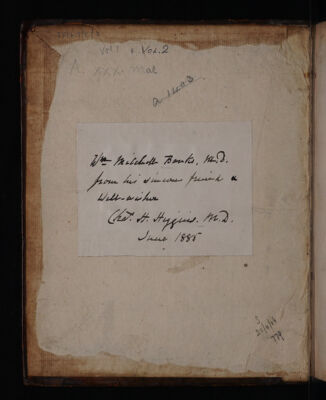 Vol 1 & Vol. 2
A.
a 1403.
Wm Mitchell Banks, M.D.
from his sincere friend &
Well-wisher
Chas. H. Higgins. M.D.
June 1885